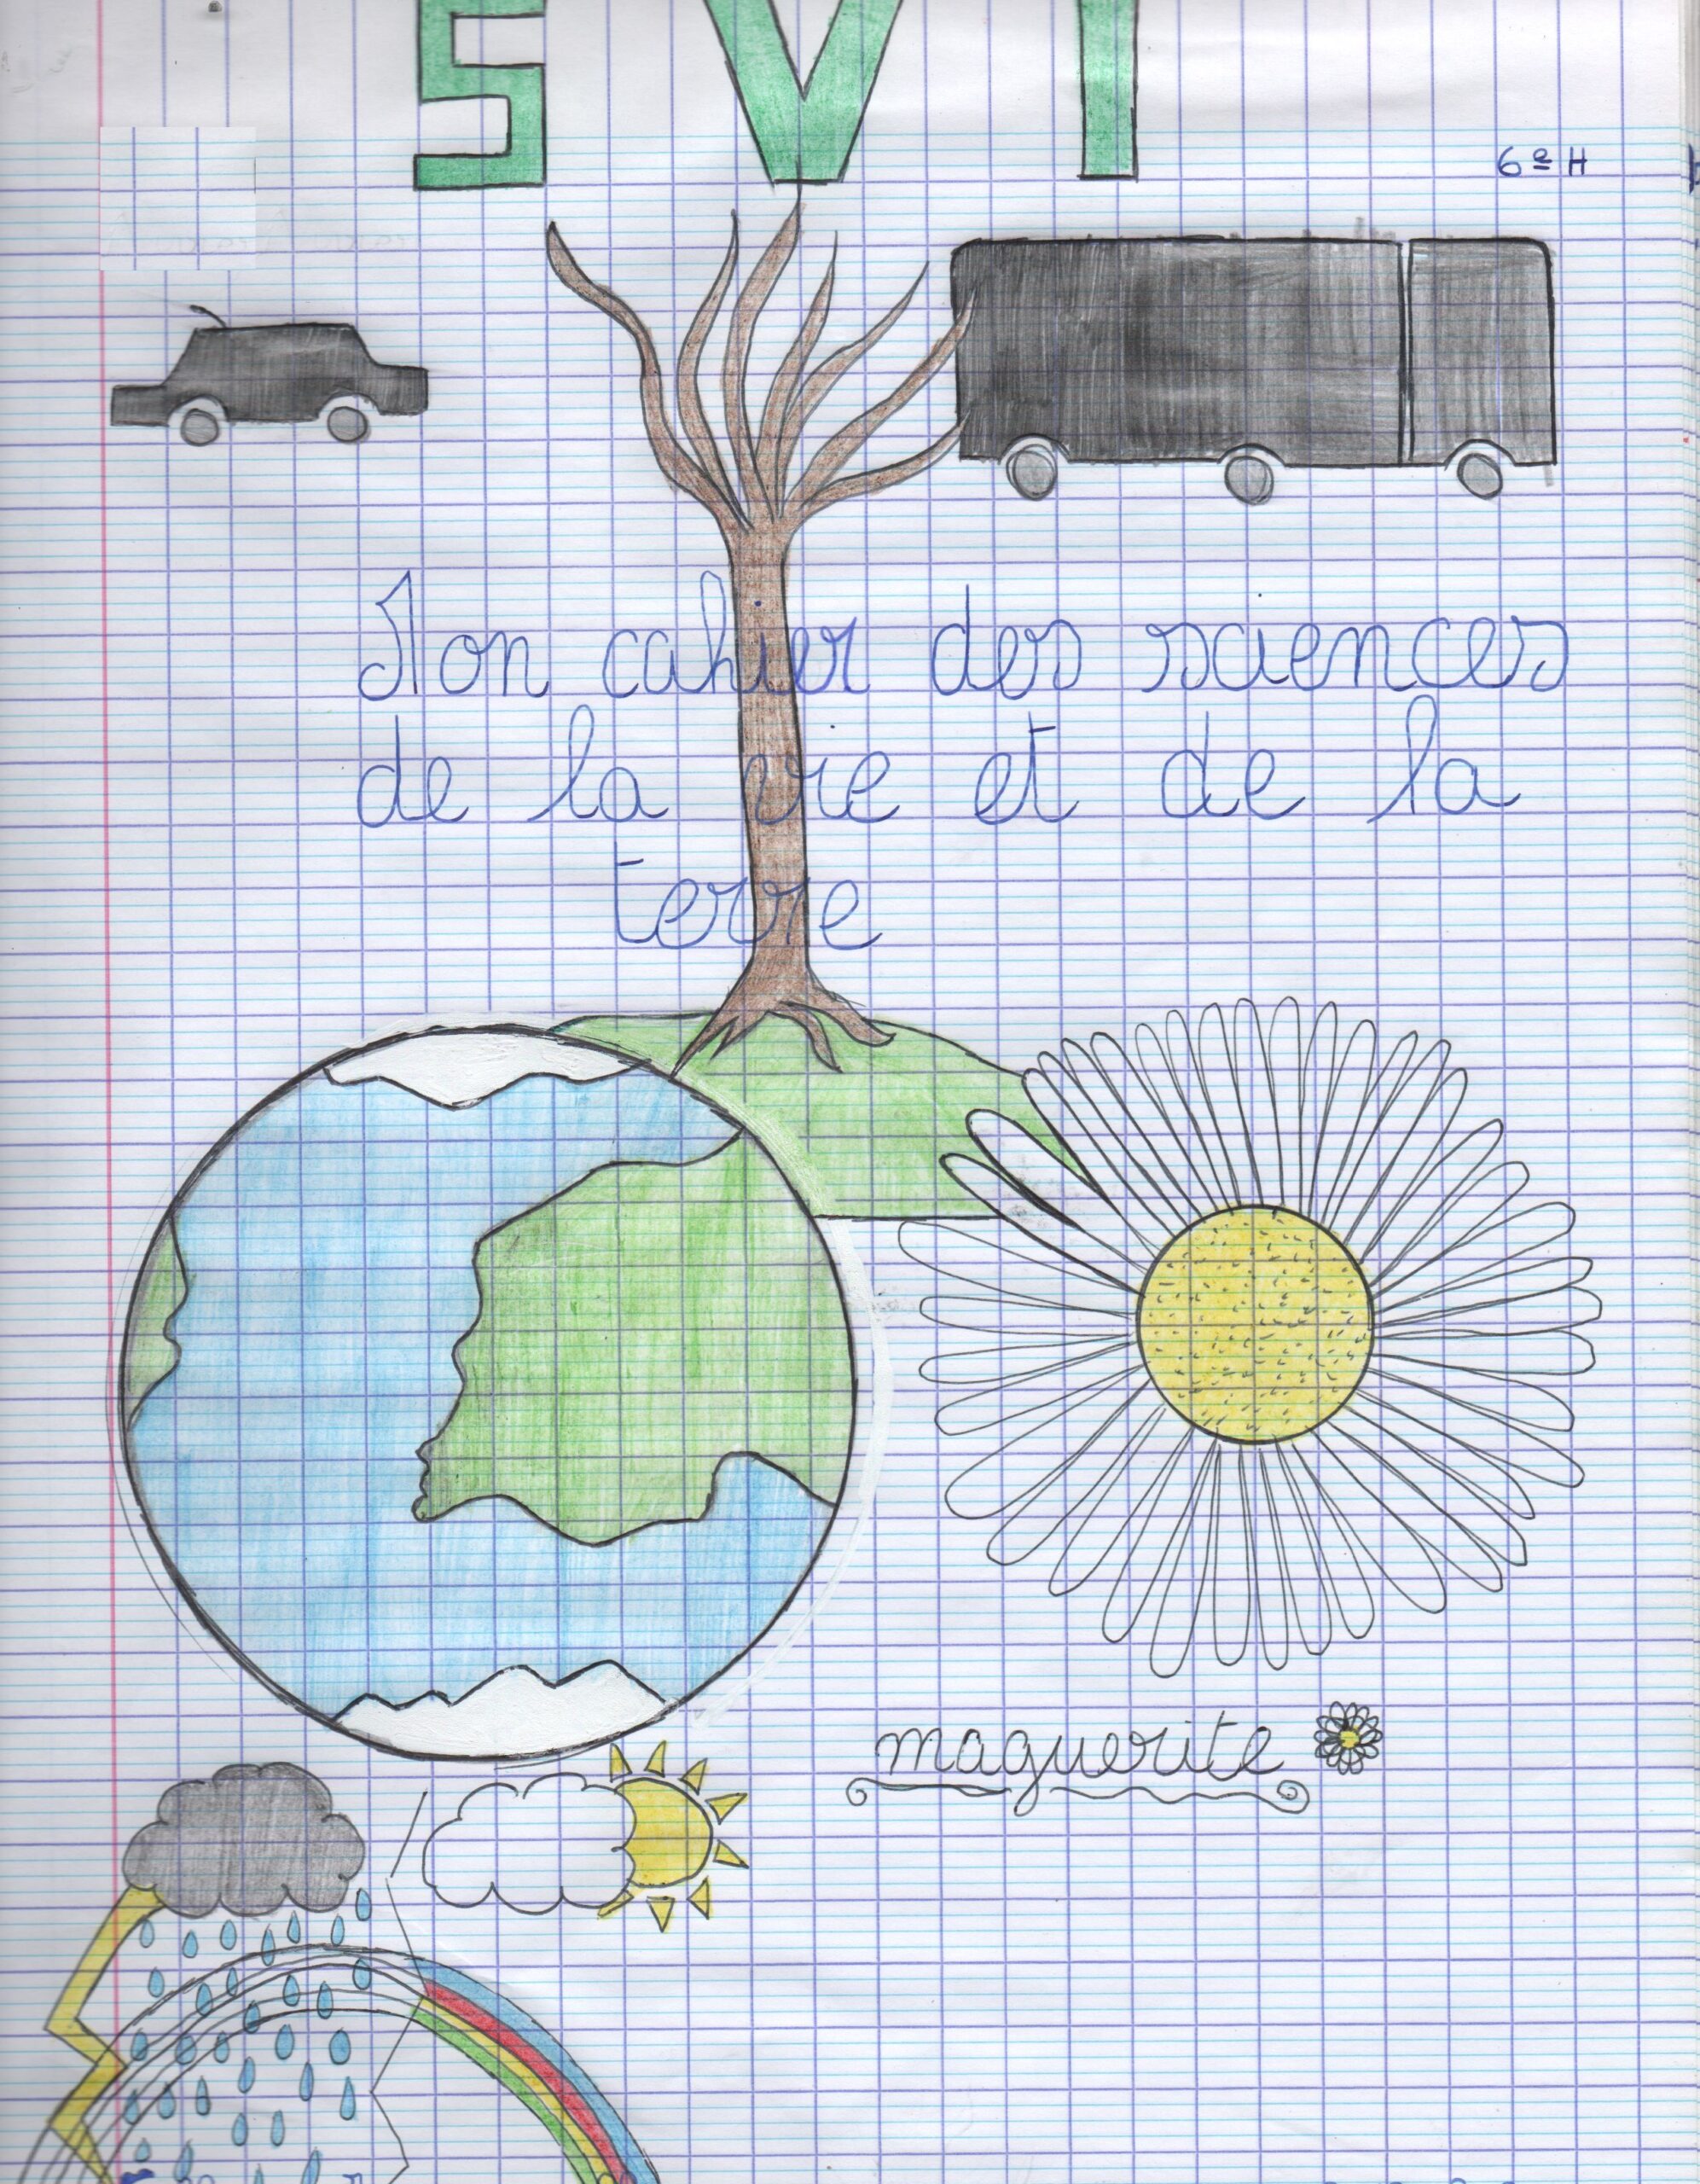 SVT
6e H
Mon cahier des sciences
de la vie et de la
terre
maguerite